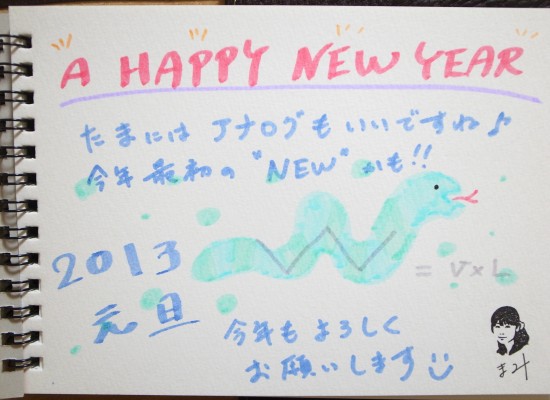 A HAPPY NEW YEAR
たまには アナログも いいですね♪
今年 最初の "NEW" かも!!
= V×L
2013
元旦
今年もよろしく
お願いします
まみ